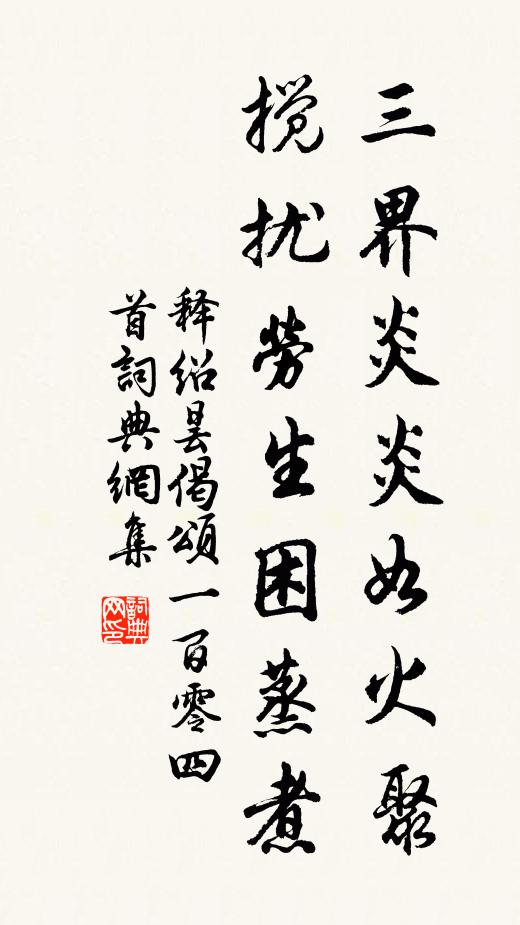 三界炎炎如火聚
搅扰劳生困蒸煮
释绍昙偈颂一百零四
首词典網集
詞典网印